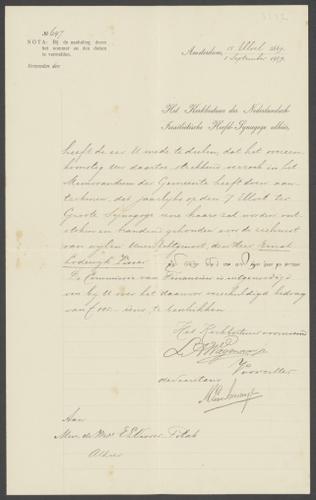 No 647
NOTA: Bij de aanhaling dezer
het nommer en den datum
te vermelden.
Amsterdam, 15 Elloel 5669.
1 September 1909.
Het Kerkbestuur der Nederlandsch-
Israëlietische Hoofd-Synagoge alhier,
heeft de eer U mede te deelen, dat het overeen-
komstig Uw daartoe strekkend verzoek in het
Memorandum der Gemeente heeft doen aan-
teekenen, dat jaarlijks op den 7 Elloel ter
Groote Synagoge eene kaars zal worden ont-
stoken en brandend gehouden voor de zielsrust
van wijlen Uwen Echtgenoot, den Heer
Lodewijk Visser
De Commissie van Financien is uitgenoodigd
van bij U over het daarvoor verschuldigd bedrag
van f 100.- te beschikken.
Het Kerkbestuur voornoemd
Voorzitter
Secretaris
Aan
Mevr. de Wed. E. Visser
Alhier